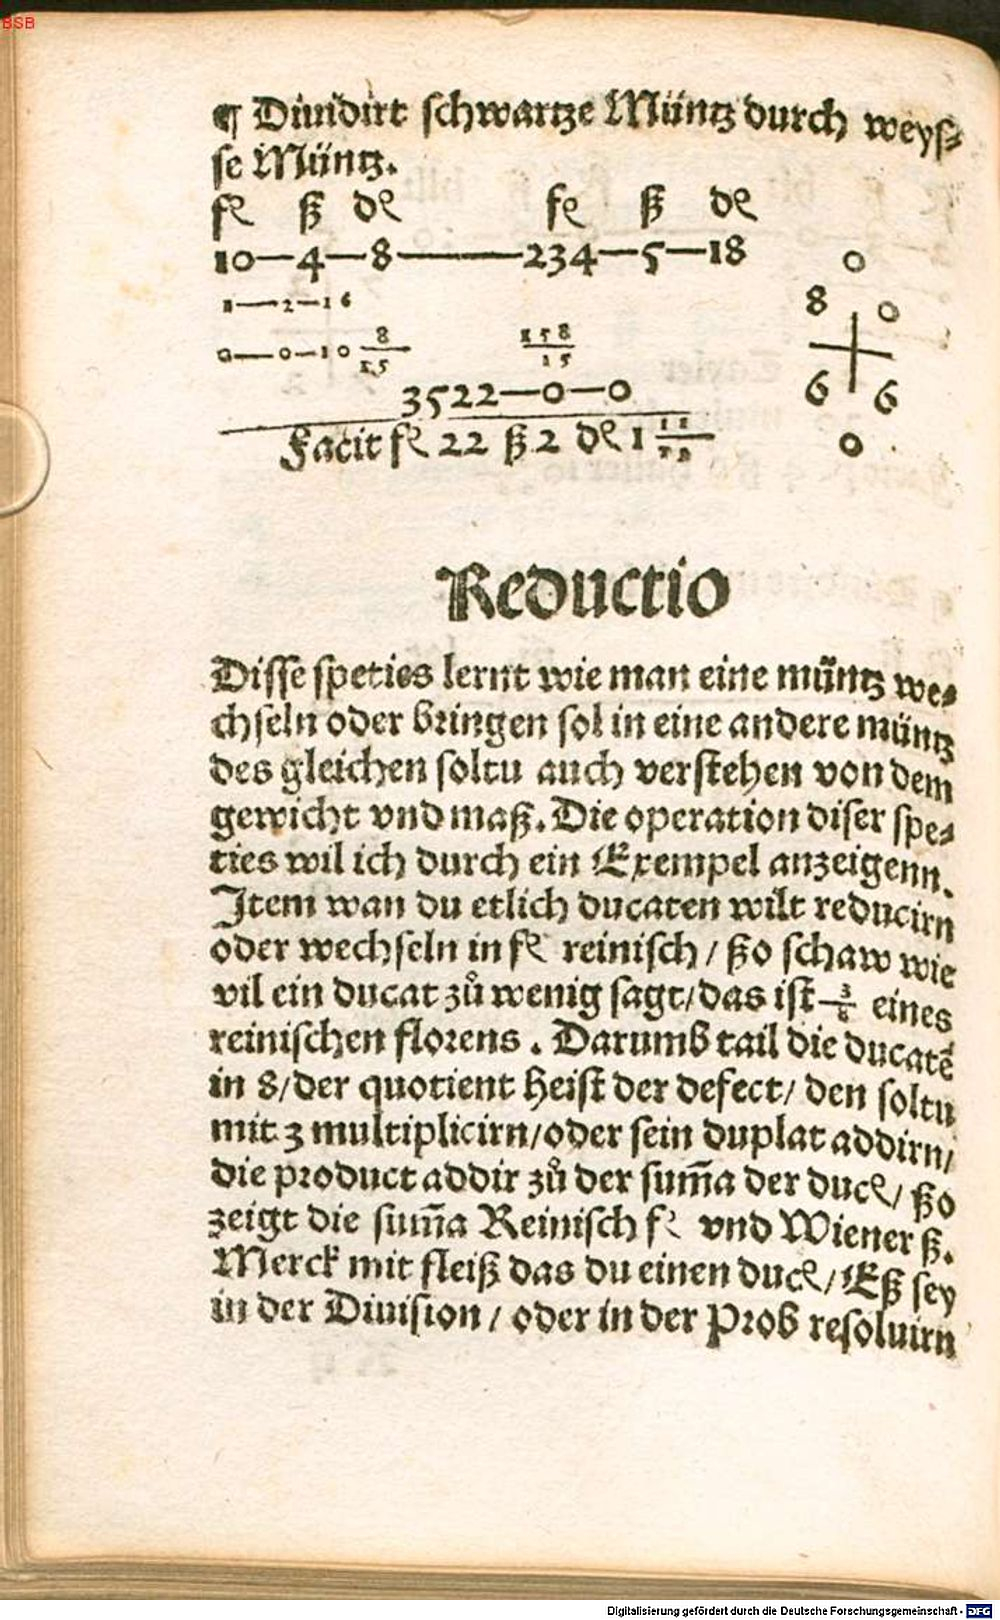 BSB
¶ Diuidirt schwartze Müntz durch weys⸗
se Müntz.
fl ß dl fl ß dl
10—4—8———234—5—18
1—2—16
0—0—10 8/15 158/15
3522—0—0
0
8 0
6 6
0
Facit fl 22 ß 2 dl 1
Reductio
Disse speties lernt wie man eine müntz we⸗
chseln oder bringen sol in eine andere müntz
des gleichen soltu auch verstehen von dem
gewicht vnd maß. Die operation diser spe⸗
ties wil ich durch ein Exempel anzeigenn.
Item wan du etlich ducaten wilt reducirn
oder wechseln in fl reinisch / ßo schaw wie
vil ein ducat zů wenig sagt/das ist 3/8 eines
reinischen florens . Darumb tail die ducatē
in 8/der quotient heist der defect/ den soltu
mit 3 multiplicirn/oder sein duplat addirn/
die product addir zů der sum̃a der ducl/ ßo
zeigt die sum̃a Reinisch fl vnd Wiener ß.
Merck mit fleiß das du einen ducl/Eß sey
in der Diuision / oder in der Prob resoluirn
Digitalisierung gefördert durch die Deutsche Forschungsgemeinschaft - DFG